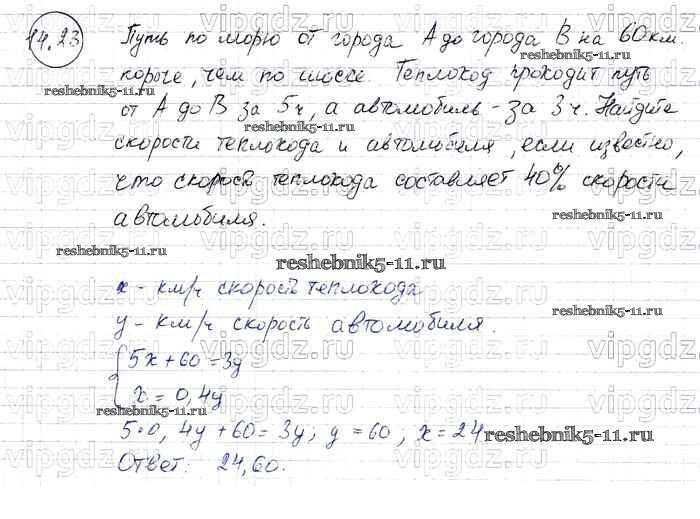 14.23 Путь по морю от города А до города В на 60 км.
короче, чем по шоссе. Теплоход проходит путь
reshebnik5-11.ru
от А до В за 5 ч, а автомобиль - за 3 ч. Найдите
reshebnik5-11.ru
скорости теплохода и автомобиля, если известно,
что скорость теплохода составляет 40% скорости
автомобиля.
reshebnik5-11.ru
reshebnik5-11.ru
reshebnik5-11.ru
reshebnik5-11.ru
x - км/ч скорость теплохода
y - км/ч скорость автомобиля.
reshebnik5-11.ru
5x + 60 = 3y
x = 0,4y
reshebnik5-11.ru
5·0,4y + 60 = 3y; y = 60, x = 24
reshebnik5-11.ru
Ответ: 24, 60.